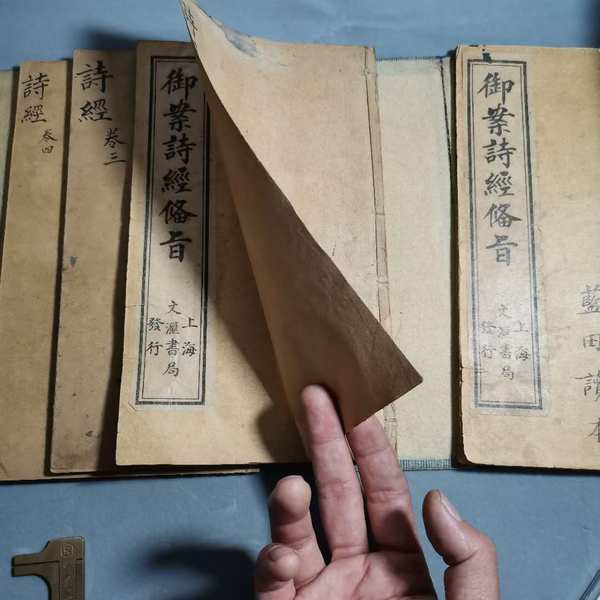 藍田讀本
御案詩經俻旨
上海
文滙書局
發行
御案詩經俻旨
上海
文滙書局
發行
詩經 卷三
詩經 卷四